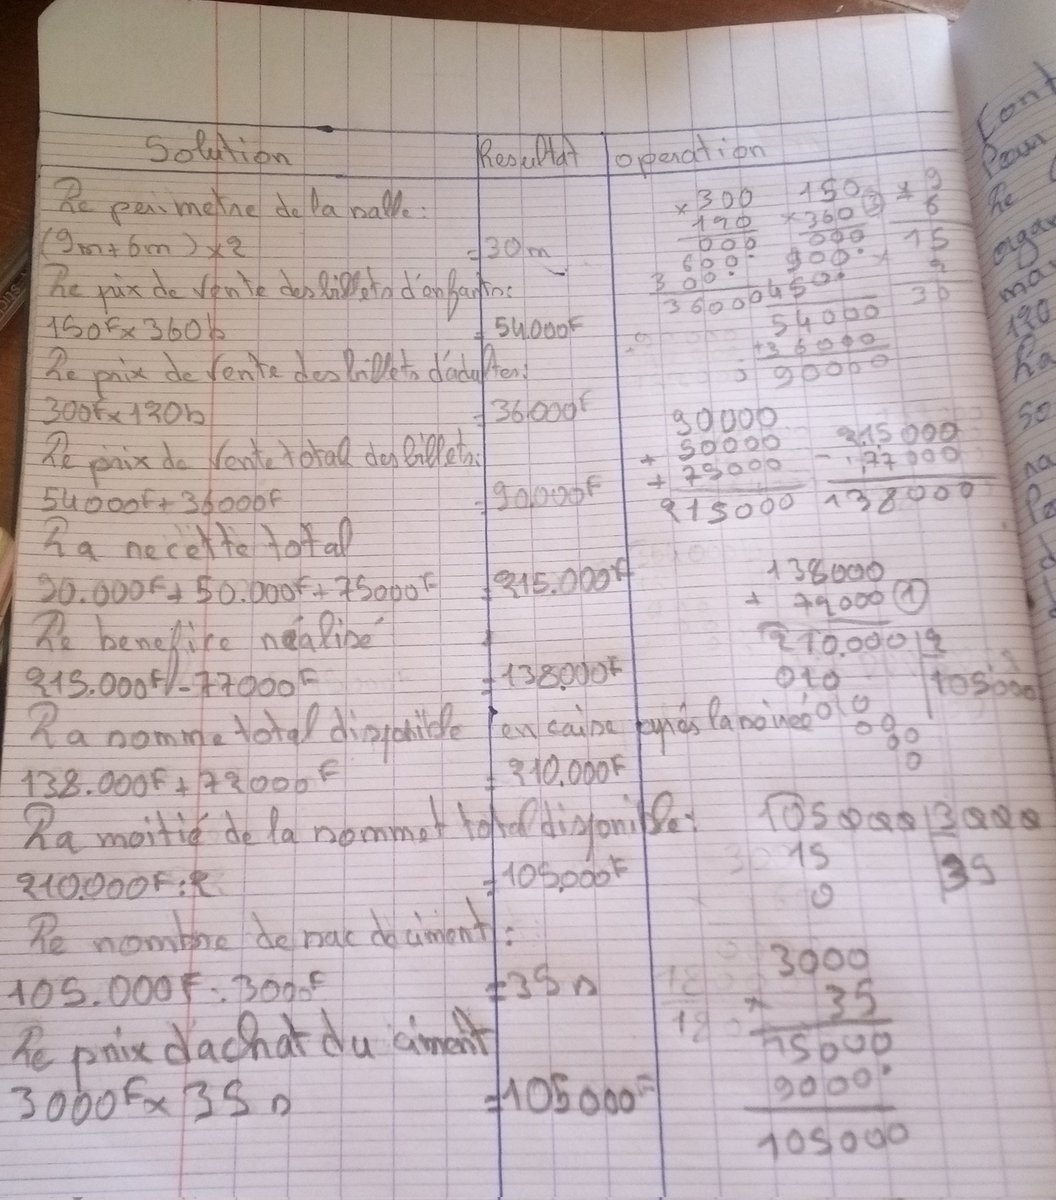 Solution Resultat operation
Le perimetre de la salle:
(9m+6m)×2 =30m
Le prix de vente des billets d'enfants:
150F×360b =54.000F
Le prix de vente des billets d'adultes:
300F×120b =36.000F
Le prix de vente total des billets:
54000F+36000F =90.000F
La recette total
90.000F+50.000F+75000F =215.000F
Le benefice réalisé
215.000F-77000F =138.000F
La somme total disponible en caisse après la soirée
138.000F+72000F =210.000F
La moitié de la sommet total disponible:
210.000F:2 =105.000F
Le nombre de sac de ciment:
105.000F:3000F =35s
Le prix d'achat du ciment
3000F×35s =105000F
×300
120
000
600
300
36000
150
×360
000
900
450
54000
+36000
90000
9
6
15
2
30
90000
+50000
+75000
215000
215000
-77000
138000
138000
+72000 1
210.000 2
010 105000
010
00
00
0
105000 3000
15 35
0
3000
×35
15000
9000
105000